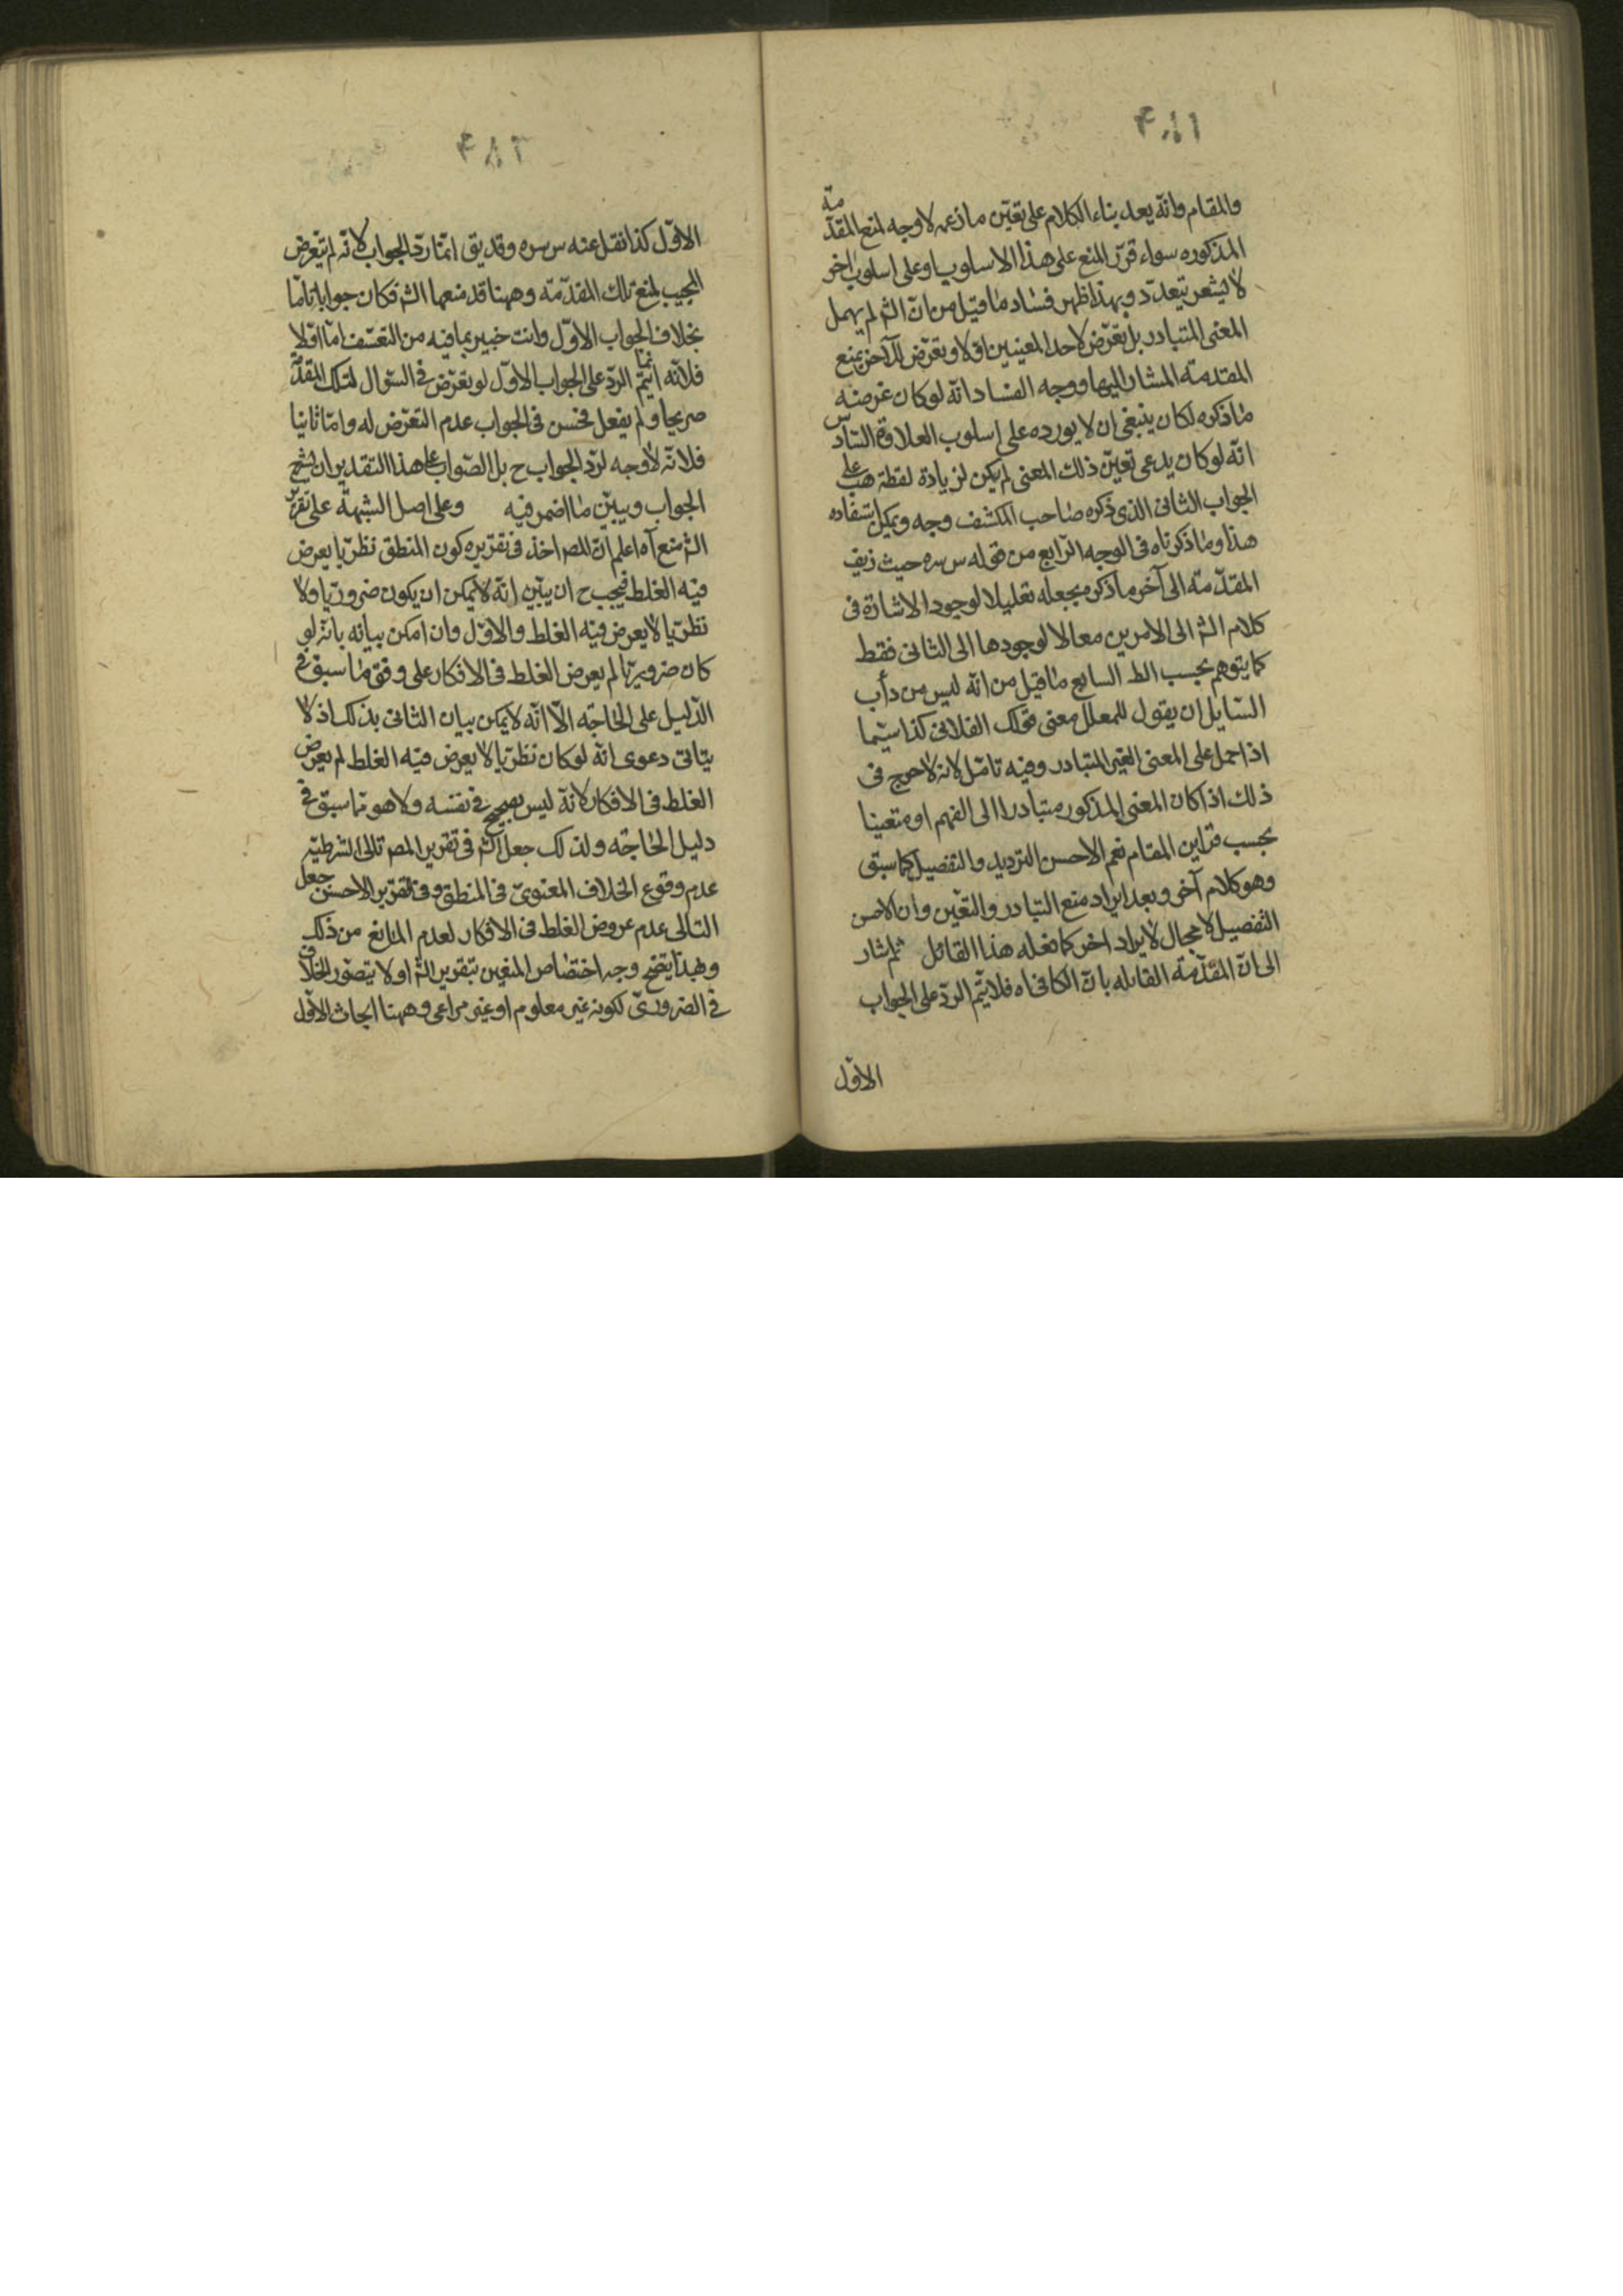 والمقام وانه بعد بناء الكلام على تعيّن ما زعمه لا وجه لمنع المقدّمة
المذكوره سواء قرّر المنع على هذا الاسلوب او على اسلوب اخر
لا يشعر بتعدّد وبهذا ظهر فساد ما قيل من انّ الشم لم يهمل
المعنى المتبادر بل تعرّض لاحد المعنيين اوّلا وتعرّض للآخر بمنع
المقدمة المشار اليها ووجه الفساد انّه لو كان غرضه
ما ذكره لكان ينبغى ان لا يورده على اسلوب العلاوة السّادس
انّه لو كان يدعى تعيّن ذلك المعنى لم يكن لزيادة لفظة هب على
الجواب الثانى الذى ذكره صاحب الكشف وجه ويمكن استفاده
هذا وما ذكرناه فى الوجه الرّابع من قوله س سره حيث زيف
المقدّمة الى آخر ما ذكر بجعله تعليلا لوجود الاشارة فى
كلام الشم الى الامرين معا لا لوجودها الى الثانى فقط
كما يتوهم بحسب الظ السابع ما قيل من انّه ليس من دأب
السّايل ان يقول للمعلل معنى قولك الفلانى كذا سيّما
اذا حمل على المعنى الغير المتبادر وفيه تامّل لانه لا حرج فى
ذلك اذا كان المعنى المذكور متبادرا الى الفهم او متعينا
بحسب قراين المقام نعم الاحسن الترديد والتفصيل كما سبق
وهو كلام آخر وبعد ايراد منع التبادر والتعيّن وان الاحسن
التفصيل لا مجال لايراد اخر كما فعله هذا القائل ثم اشار
الى انّ المقدّمة القابله بانّ الكافى اه فلا يتمّ الردّ على الجواب
الاوّل
الاوّل كذا نقل عنه س سره وقد يق انّما ردّ الجواب لانّه لم يتعرض
المجيب لمنع تلك المقدّمة وههنا قد منعها الشم فكان جوابا تامّا
بخلاف الجواب الاوّل وانت خبير بما فيه من التعسّف امّا اوّلا
فلانّه انّما يتمّ الردّ على الجواب الاوّل لو تعرّض فى السّوال لتلك المقدّمة
صريحا ولم يفعل فحسن فى الجواب عدم التعرّض له وامّا ثانيا
فلانّه لا وجه لردّ الجواب ح بل الصّواب على هذا التقدير ان يشرح
الجواب ويبيّن ما اضمر فيه وعلى اصل الشبهة على تقرير
الشم منع آه اعلم انّ المص اخذ فى تقريره كون المنطق نظريّا يعرض
فيه الغلط فيجب ح ان يبيّن انّه لا يمكن ان يكون ضروريّا ولا
نظريّا لا يعرض فيه الغلط والاوّل وان امكن بيانه بانّه لو
كان ضروريّا لم يعرض الغلط فى الافكار على وفق ما سبق فى
الدّليل على الحاجة الّا انّه لا يمكن بيان الثانى بذلك اذ لا
يتاتى دعوى انّه لو كان نظريّا لا يعرض فيه الغلط لم يعرض
الغلط فى الافكار لانّه ليس بصحيح فى نفسه ولا هو ممّا سبق فى
دليل الحاجة ولذلك جعل الشم فى تقرير المص تالى الشرطيّة
عدم وقوع الخلاف المعنوىّ فى المنطق وفى التقرير الاحسن جعل
التالى عدم عروض الغلط فى الافكار لعدم المانع من ذلك
وبهذا يتضح وجه اختصاص المنعين بتقرير الشم اولا يتصوّر الخلاف
فى الضرورىّ لكونه غير معلوم او غير مراعى وههنا ابحاث الاوّل